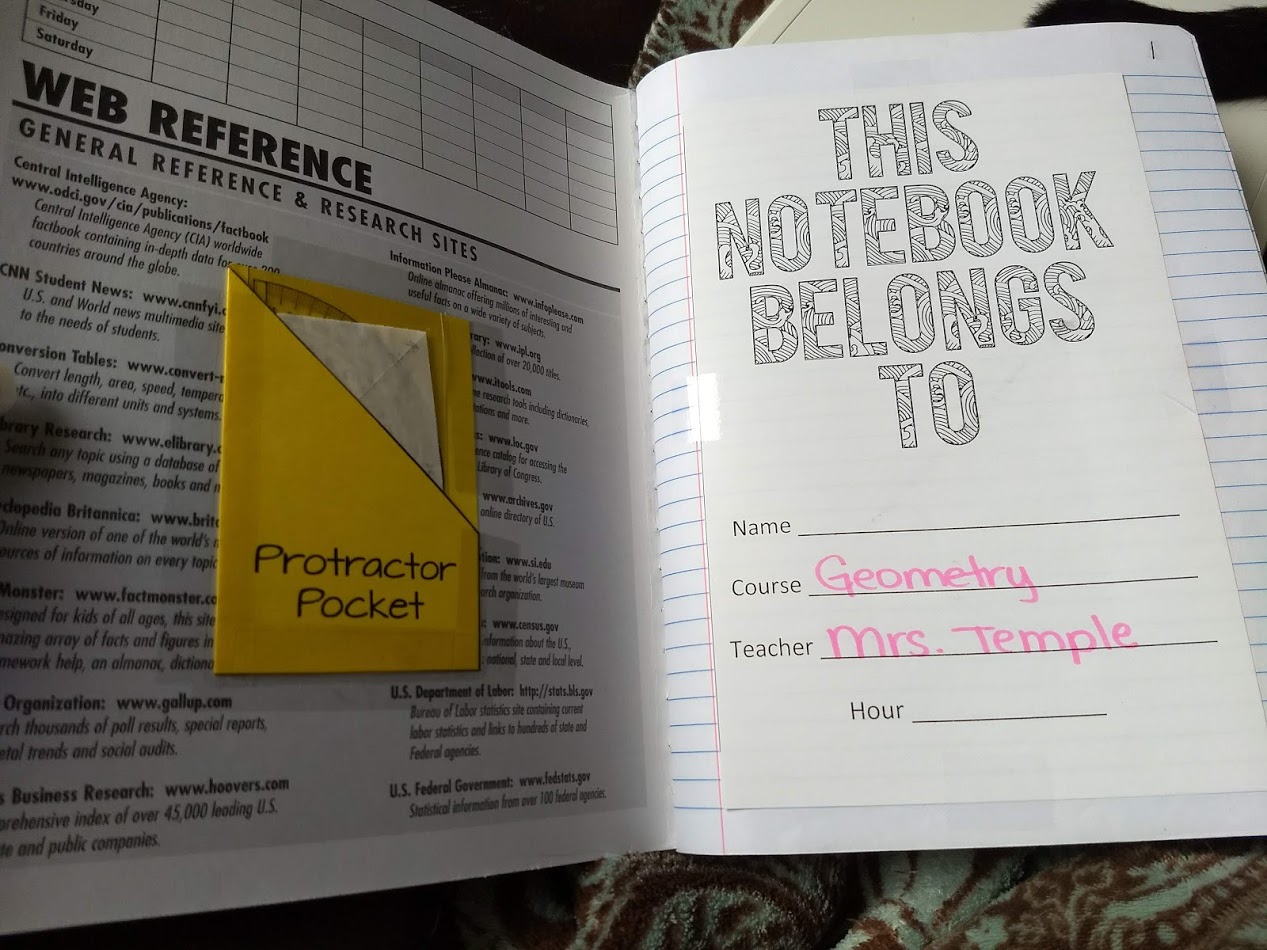 Friday
Saturday
WEB REFERENCE
GENERAL REFERENCE & RESEARCH SITES
Central Intelligence Agency:
www.odci.gov/cia/publications/factbook
Central Intelligence Agency (CIA) worldwide
factbook containing in-depth data for over 200
countries around the globe.
CNN Student News: www.cnnfyi.c
U.S. and World news multimedia site
to the needs of students.
onversion Tables: www.convert-
Convert length, area, speed, tempera
etc., into different units and systems.
brary Research: www.elibrary.c
Search any topic using a database of
newspapers, magazines, books and
clopedia Britannica: www.brit
Online version of one of the world's
ources of information on every topic
Monster: www.factmonster.co
esigned for kids of all ages, this site
mazing array of facts and figures in
mework help, an almanac, dictiona
Organization: www.gallup.com
rch thousands of poll results, special reports,
etal trends and social audits.
s Business Research: www.hoovers.com
prehensive index of over 45,000 leading U.S.
te and public companies.
Information Please Almanac: www.infoplease.com
Online almanac offering millions of interesting and
useful facts on a wide variety of subjects.
rary: www.ipl.org
llection of over 20,000 titles.
www.itools.com
ne research tools including dictionaries,
tations and more.
s: www.loc.gov
ence catalog for accessing the
Library of Congress.
www.archives.gov
online directory of U.S.
tion: www.si.edu
from the world's largest museum
arch organization.
: www.census.gov
nformation about the U.S.,
: national, state and local level.
U.S. Department of Labor: http://stats.bls.gov
Bureau of Labor statistics site containing current
labor statistics and links to hundreds of state and
Federal agencies.
U.S. Federal Government: www.fedstats.gov
Statistical information from over 100 federal agencies.
Protractor
Pocket
1
THIS
NOTEBOOK
BELONGS
TO
Name
Course Geometry
Teacher Mrs. Temple
Hour